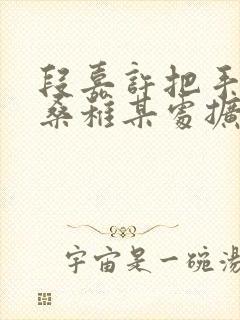 段嘉許把手
桑稚某處擴
宇宙是一碗湯